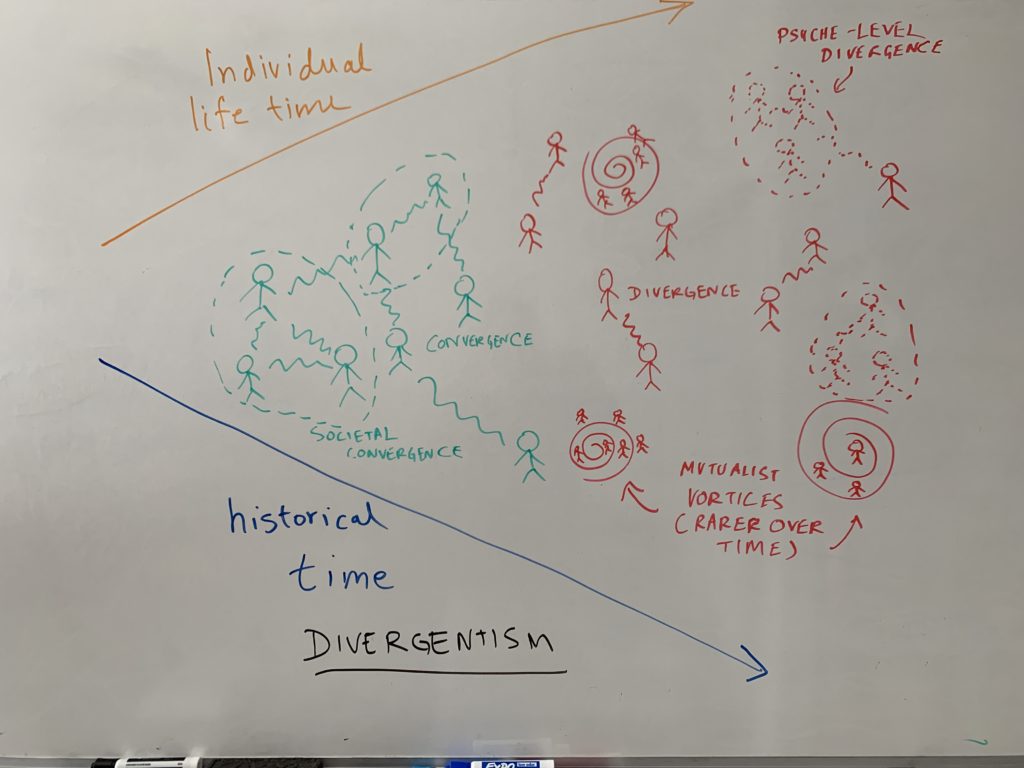 PSYCHE-LEVEL
DIVERGENCE
Individual
life time
DIVERGENCE
CONVERGENCE
SOCIETAL
CONVERGENCE
MUTUALIST
VORTICES
(RARER OVER
TIME)
historical
time
DIVERGENTISM
EXPO